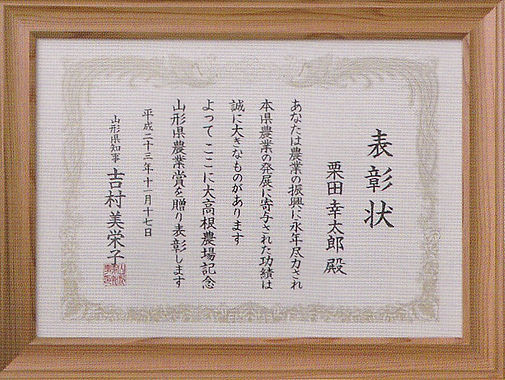 表彰状
栗田幸太郎殿
あなたは農業の振興に永年尽力され
本県農業の発展に寄与された功績は
誠に大きなものがあります
よってここに大高根農場記念
山形県農業賞を贈り表彰します
平成二十三年十一月十七日
山形県知事 吉村美栄子